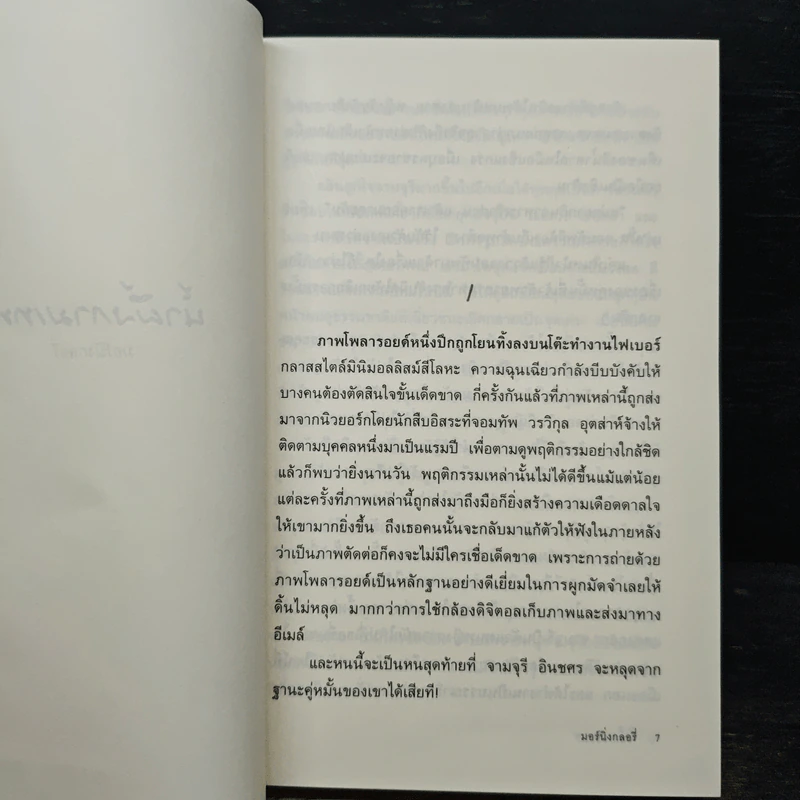 1
ภาพโพลารอยด์หนึ่งปึกถูกโยนทิ้งลงบนโต๊ะทำงานไฟเบอร์
กลาสสไตล์มินิมอลลิสม์สีโลหะ ความฉุนเฉียวกำลังบีบบังคับให้
บางคนต้องตัดสินใจขั้นเด็ดขาด กี่ครั้งกันแล้วที่ภาพเหล่านี้ถูกส่ง
มาจากนิวยอร์กโดยนักสืบอิสระที่จอมทัพ วรวิกุล อุตส่าห์จ้างให้
ติดตามบุคคลหนึ่งมาเป็นแรมปี เพื่อตามดูพฤติกรรมอย่างใกล้ชิด
แล้วก็พบว่ายิ่งนานวัน พฤติกรรมเหล่านั้นไม่ได้ดีขึ้นแม้แต่น้อย
แต่ละครั้งที่ภาพเหล่านี้ถูกส่งมาถึงมือก็ยิ่งสร้างความเดือดดาลใจ
ให้เขามากยิ่งขึ้น ถึงเธอคนนั้นจะกลับมาแก้ตัวให้ฟังในภายหลัง
ว่าเป็นภาพตัดต่อก็คงจะไม่มีใครเชื่อเด็ดขาด เพราะการถ่ายด้วย
ภาพโพลารอยด์เป็นหลักฐานอย่างดีเยี่ยมในการผูกมัดจำเลยให้
ดิ้นไม่หลุด มากกว่าการใช้กล้องดิจิตอลเก็บภาพและส่งมาทาง
อีเมล์
และหนนี้จะเป็นหนสุดท้ายที่ จามจุรี อินชศร จะหลุดจาก
ฐานะคู่หมั้นของเขาได้เสียที!
มอร์นิ่งกลอรี่ 7